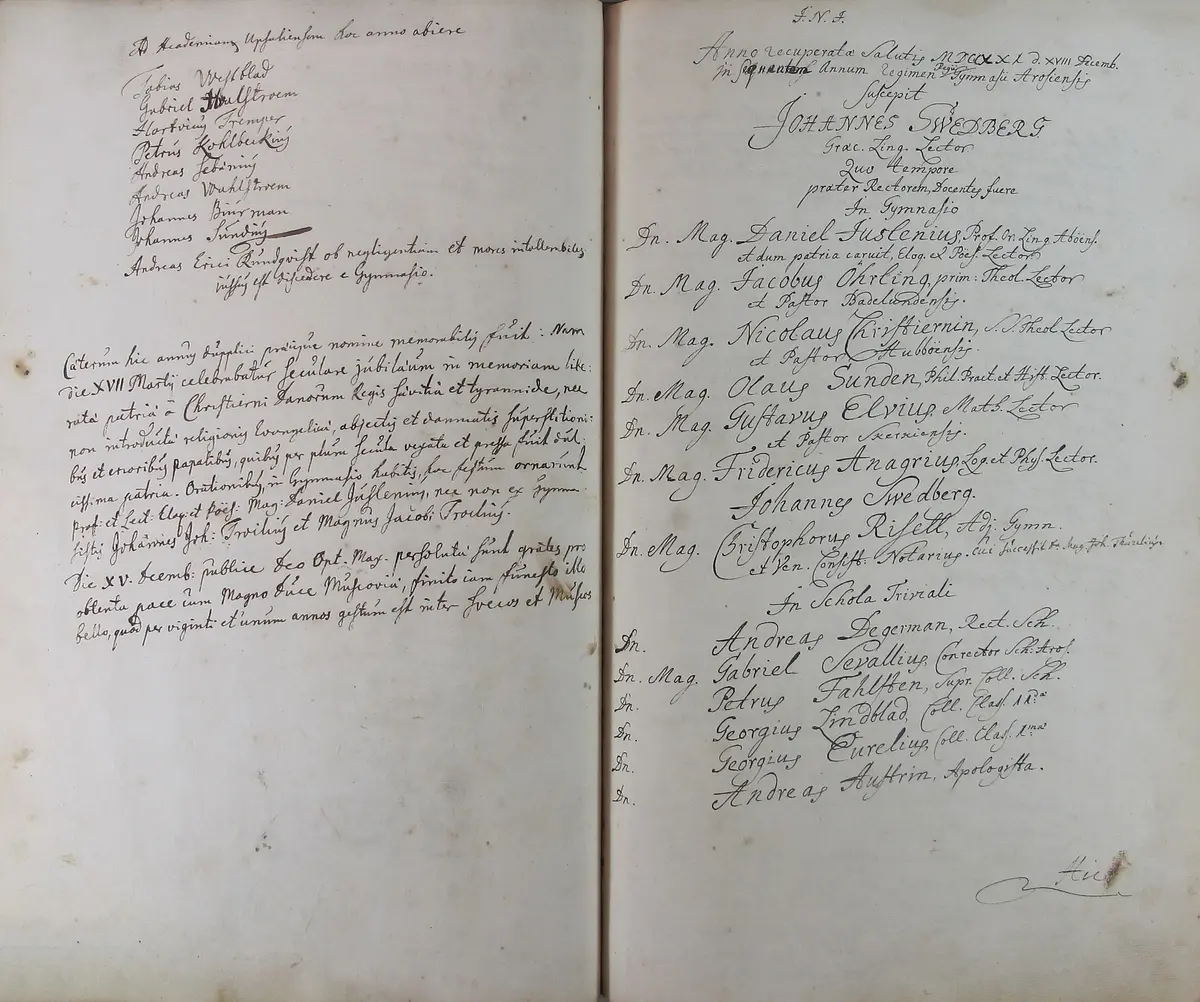 Ad Academiam Upsaliensem hoc anno abiere
Tobias Westblad
Gabriel Hulstroem
Hartvicus Tremper
Petrus Kohlbeckius
Andreas Sebanius
Andreas Wahlstroem
Johannes Biurman
Johannes Sundius
Andreas Erici Rundqvist ob negligentiam et mores intollerabiles
jussus est discedere e Gymnasio.
Cæterum hic annus duplici præcipue nomine memorabilis fuit: Nam
die XVII Martij celebrabatur seculare jubilæum in memoriam libe-
ratæ patriæ â Christierni Danorum Regis sævitiâ et tyrannide, nec
non introductæ religionis Evangelicæ, abjectis et damnatis superstitioni-
bus et erroribus papalibus, quibus per plura secula vexata et pressa fuit dul-
cissima patria. Orationibus in Gymnasio habitis, hoc festum ornarunt
Prof: et Lect: Eloq: et Poës: Mag: Daniel Juslenius, nec non ex Gymna-
sistis Johannes Joh: Troilius et Magnus Jacobi Troilius.
Die XV. Decemb: publice Deo Opt. Max. persolutæ sunt grates pro
obtenta pace cum Magno Duce Muscoviæ, finito iam funesto illo
bello, quod per viginti et unum annos gestum est inter Svecos et Muscos
J. N. J.
Anno recuperatæ Salutis MDCCXXI d. XVIII Decemb.
in sequentem Annum Regimen Regii Gymnasii Arosiensis
Suscepit
JOHANNES SWEDBERG
Græc. Ling. Lector
Quo tempore
præter Rectorem, Docentes fuere
In Gymnasio
Dn. Mag. Daniel Juslenius, Prof. Or. Ling. Aboëns.
et dum patria caruit, Eloq. et Poës. Lector
Dn. Mag. Jacobus Öhrling, prim: Theol. Lector
et Pastor Badelundensis.
Dn. Mag. Nicolaus Christiernin, S. S. Theol. Lector
et Pastor Hubboënsis.
Dn. Mag. Olaus Sunden, Phil. Pract. et Hist. Lector.
Dn. Mag. Gustavus Elvius, Math. Lector
et Pastor Skerkensis.
Dn. Mag. Fridericus Anagrius, Log. et Phys. Lector.
Johannes Swedberg.
Dn. Mag. Christophorus Risell, Adj. Gymn.
et Ven. Consist. Notarius. cui successit Dn. Mag. Joh.
In Schola Triviali
Dn. Andreas Degerman, Rect. Sch.
Dn. Mag. Gabriel Sevallius, Conrector Sch: Aros.
Dn. Petrus Fahlsten, Supr. Coll. Sch.
Dn. Georgius Lindblad, Coll. Class. IIdæ
Dn. Georgius Eurelius, Coll. Class. 1mæ
Dn. Andreas Austrin, Apologista.
Hic